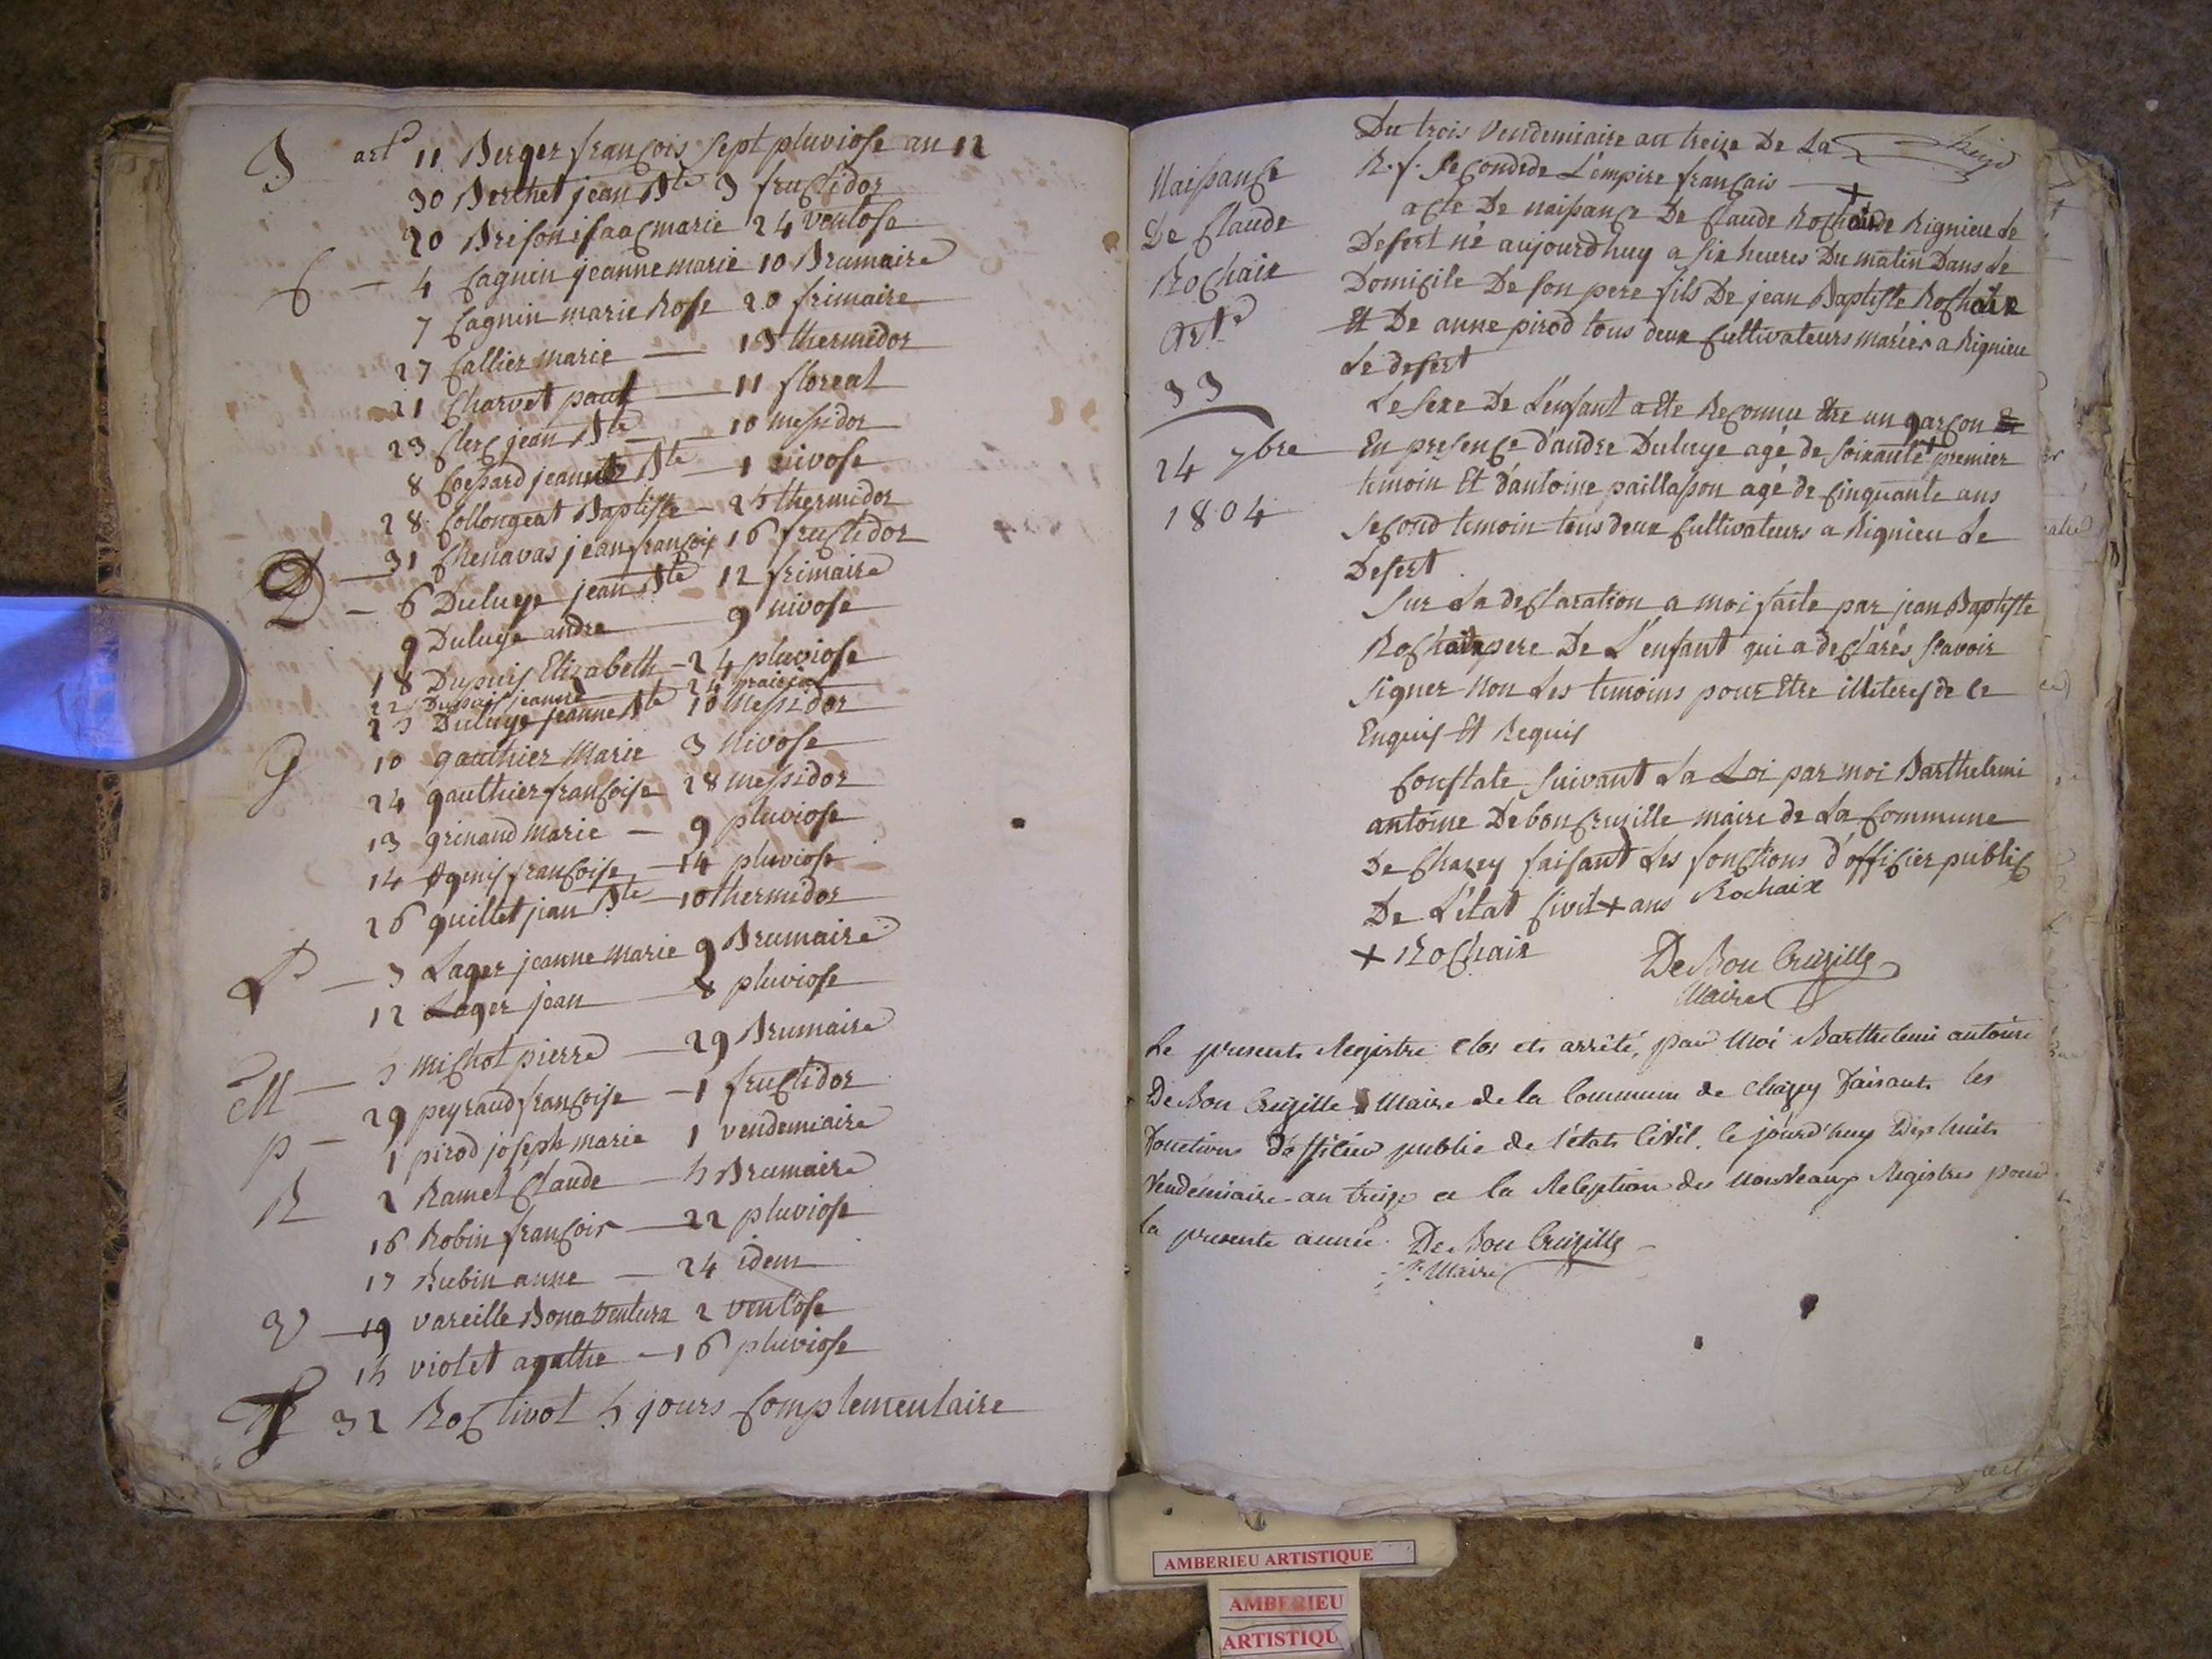 art^e 11 Berger françois sept pluviose an 12
30 Berthet jean Bte 3 fructidor
20 Brison isaac marie 24 ventose
C — 4 Cagnin jeanne marie 10 Brumaire
7 Cagnin marie Rose 20 frimaire
27 Callier marie — 15 thermidor
21 Charvet paul — 11 floreal
23 Clerc jean Bte — 10 messidor
8 Cocpard jeanne Bte — 1 nivose
28 Collongeat Baptiste — 25 thermidor
31 Chenavas jean françois 16 fructidor
D — 6 Duluye jean Bte 12 frimaire
9 Duluye andre 9 nivose
18 Dupuis Elizabeth — 24 pluviose
22 Dupuis jeanne 24 prairial
25 Duluye jeanne Bte 10 Messidor
G 10 gauthier Marie 3 Nivose
24 gauthier françoise 28 messidor
13 grinand marie — 9 pluviose
14 françoise — 14 pluviose
26 quillet jean Bte — 10 thermidor
L — 3 Lager jeanne marie 9 Brumaire
12 Lager jean — 8 pluviose
M — 5 michot pierre — 29 Brumaire
p — 29 peyraud françoise — 1 fructidor
1 pirod joseph marie 1 vendemiaire
R 2 Ramel Claude — 5 Brumaire
16 Robin françois — 22 pluviose
17 Rubin anne — 24 idem
V — 19 vareille Bonaventura 2 ventose
15 violet agathe — 16 pluviose
R 32 Roc tivot 5 jours Complementaire
Naissance
De Claude
Rochaix
Art^e
33
24 7bre
1804
Du trois Vendemiaire an treize De La
R.f. Seconde de L'empire français — +
acte De naissance De Claude Rochaix de Rignieu Le
Desert né aujourdhuy a six heures Du matin Dans Le
Domicile De son pere fils De jean Baptiste Rochaix
Et De anne pirod tous deux Cultivateurs mariés a Rignieu
Le desert
Le Sexe De L'enfant a Ete Reconnu Etre un garçon
En presence d'andre Duluye agé de soixante premier
temoin Et d'antoine paillasson agé de Cinquante ans
Second temoin tous deux Cultivateurs a Rignieu Le
Desert
Sur La declaration a moi faite par jean Baptiste
Rochaix pere De L'enfant qui a declarés scavoir
Signer Non Les temoins pour Etre illiteres de Ce
Enquis Et Requis
Constate Suivant La Loi par moi Barthelemi
antoine De bon Cruzille maire de La Commune
De Chazey faisant Les fonctions d'officier public
De L'état Civil + ans Rochaix
+ Rochaix
De Bon Cruzille
Maire
Le present Registre clos et arrêté, par Moi Barthelemi antoine
De Bon Cruzille Maire de la Commune de Chazey faisant les
fonctions d'officier public de l'état Civil, le jourd'huy Dix huit
Vendémiaire an treize a la Reception des Nouveaux Registres pour
la presente année. De Bon Cruzille
Maire
AMBERIEU ARTISTIQUE
AMBERIEU
ARTISTIQU